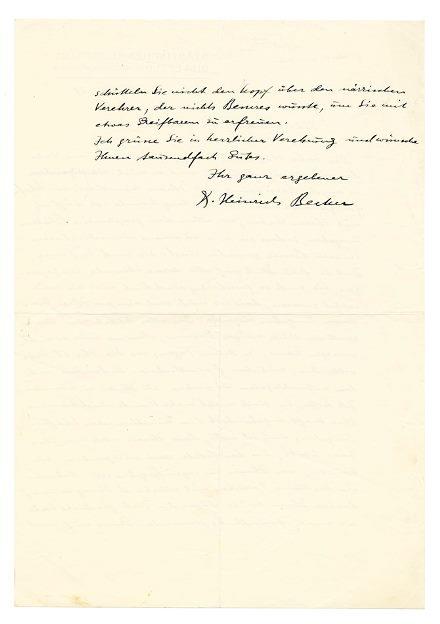 schütteln Sie nicht den Kopf über den närrischen
Verehrer, der nichts Besseres wusste, um Sie mit
etwas Greifbarem zu erfreuen.
Ich grüsse Sie in herzlicher Verehrung und wünsche
Ihnen tausendfach Gutes.
Ihr ganz ergebener
Heinrich Becker